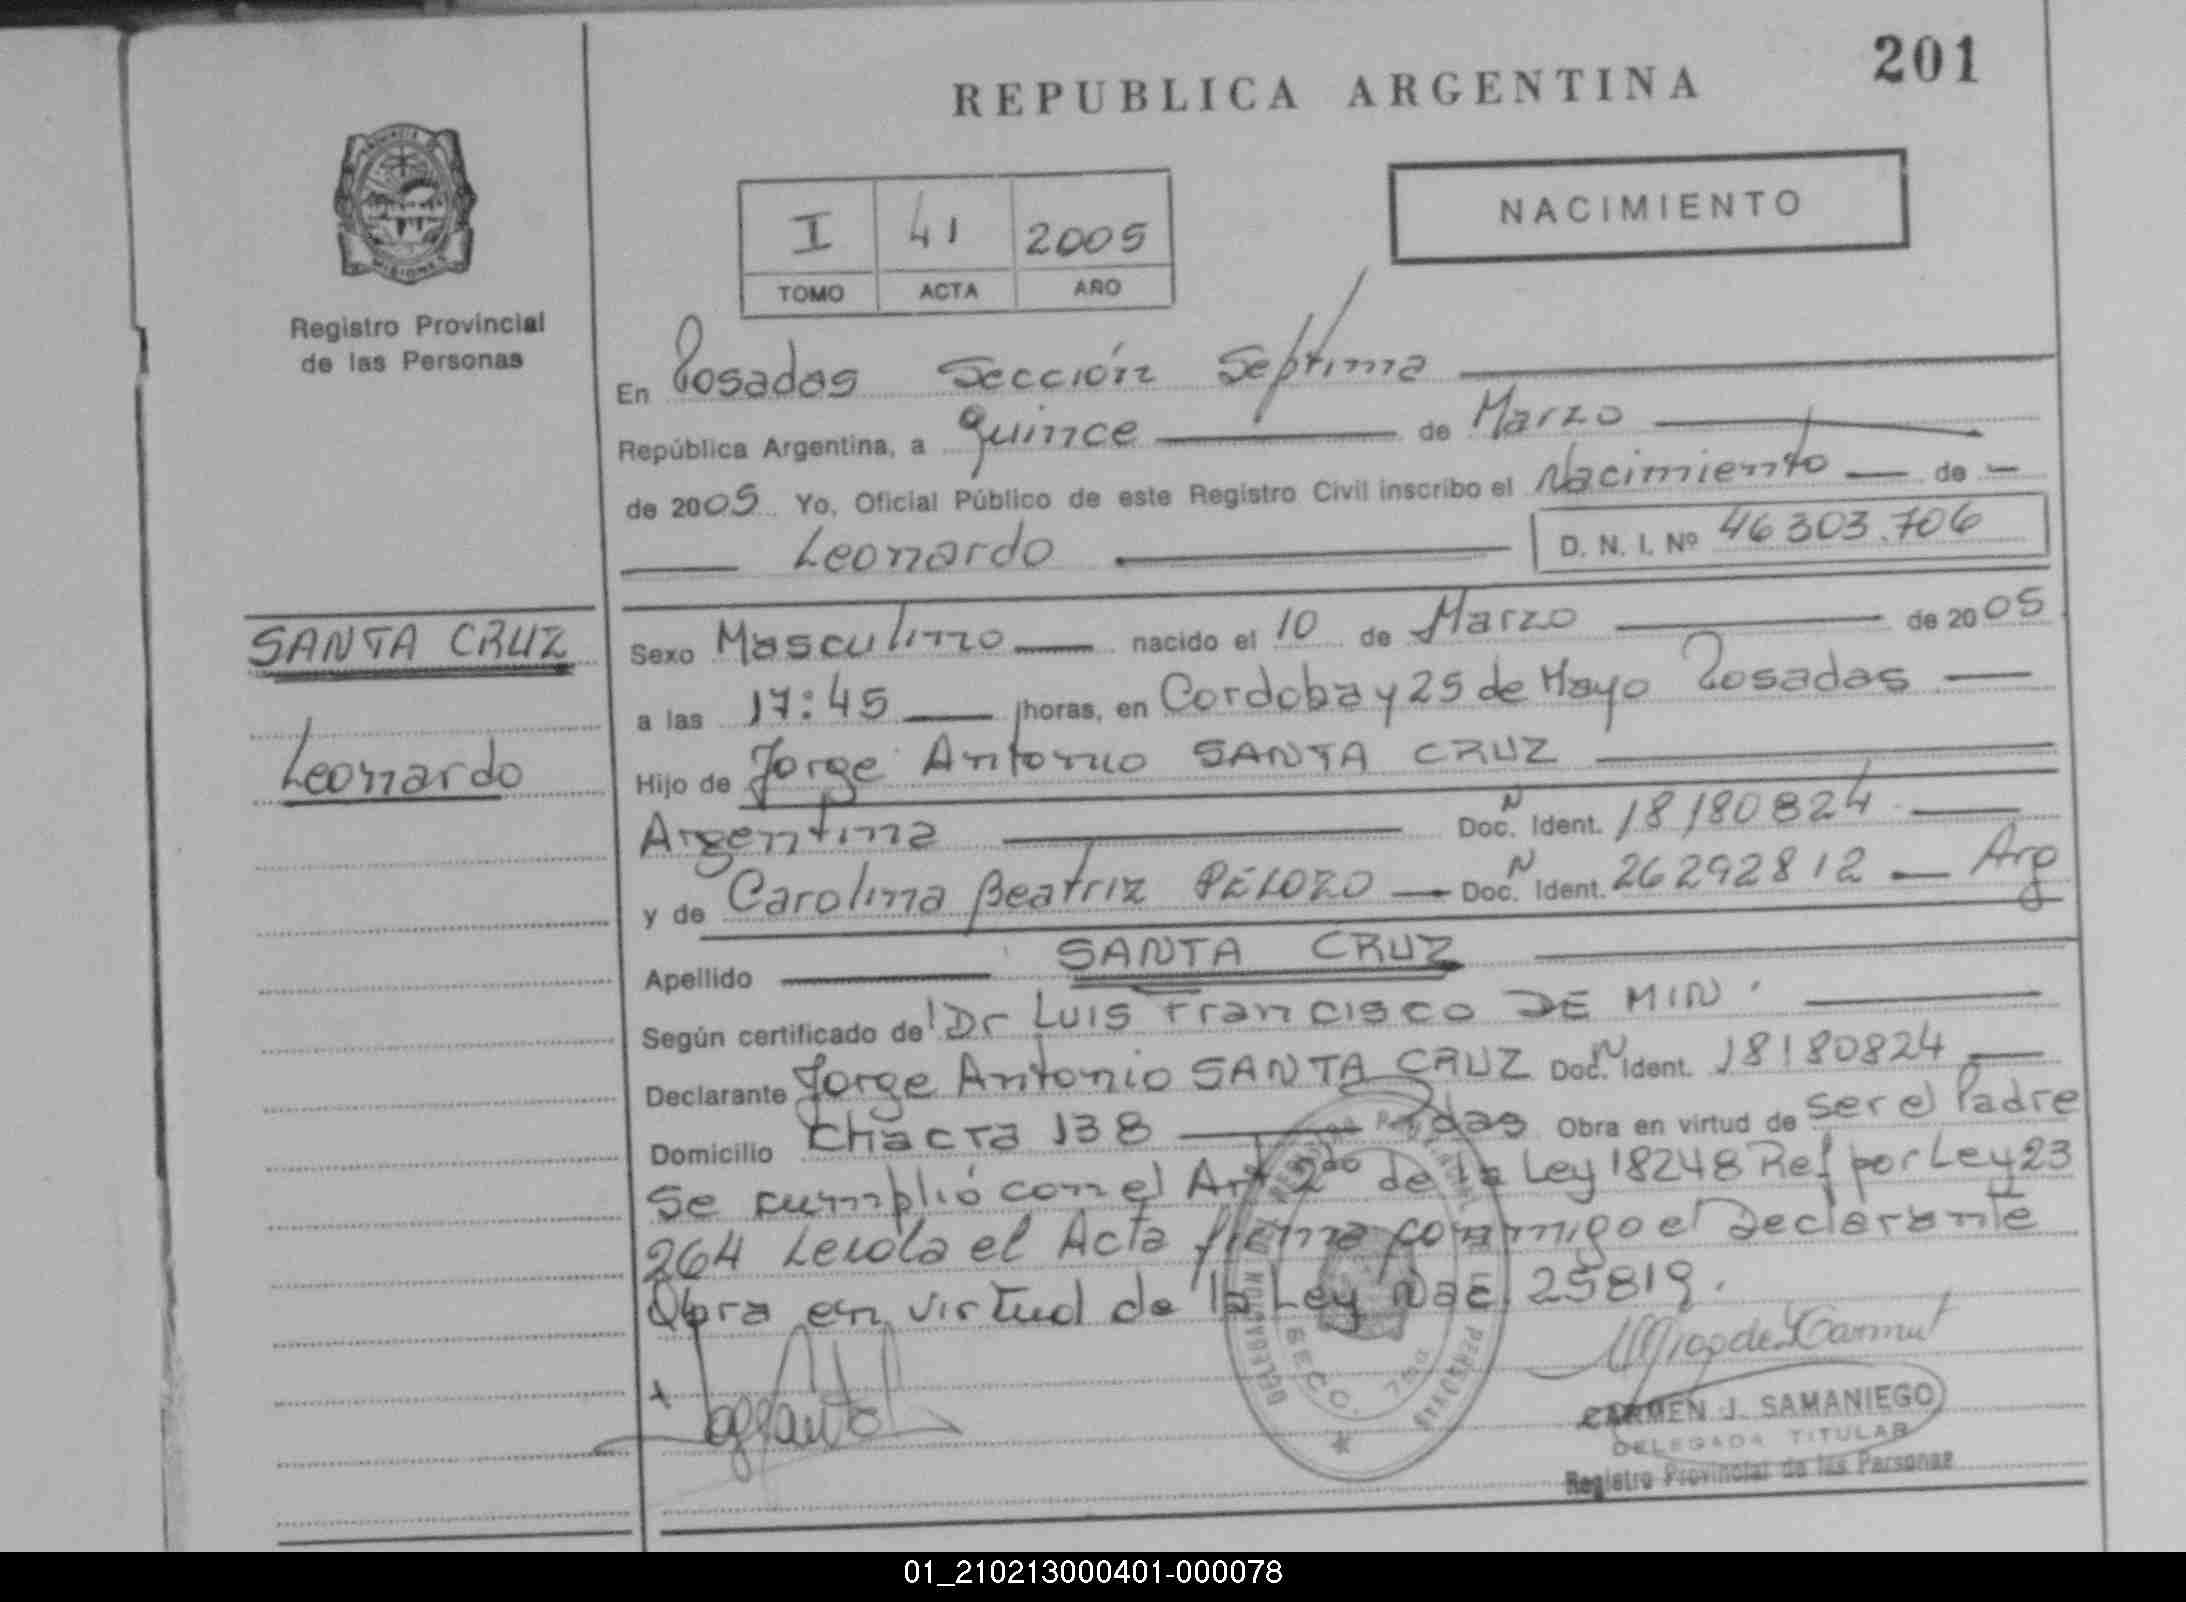 201
REPUBLICA ARGENTINA
PROVINCIA
MISIONES
Registro Provincial
de las Personas
I 41 2005
TOMO ACTA AÑO
NACIMIENTO
En Posadas Sección Septima
República Argentina, a quince de Marzo
de 2005 Yo, Oficial Público de este Registro Civil inscribo el Nacimiento de
Leonardo D. N. I. Nº 46303.706
SANTA CRUZ
Leonardo
Sexo Masculino nacido el 10 de Marzo de 2005
a las 17:45 horas, en Cordoba y 25 de Mayo Posadas
Hijo de Jorge Antonio SANTA CRUZ
Argentina Doc. N Ident. 18180824
y de Carolina Beatriz PELOZO Doc. N Ident. 26292812 Arg
Apellido SANTA CRUZ
Según certificado de Dr Luis Francisco DE MIN
Declarante Jorge Antonio SANTA CRUZ Doc. N Ident. 18180824
Domicilio Chacra 138 Pdas Obra en virtud de ser el Padre
Se cumplió con el Art 2do de la Ley 18248 Ref por Ley 23
264 Leida el Acta firma conmigo el Declarante
Obra en virtud de la Ley Nac 25819.
CARMEN J. SAMANIEGO
DELEGADA TITULAR
Registro Provincial de las Personas
01_210213000401-000078